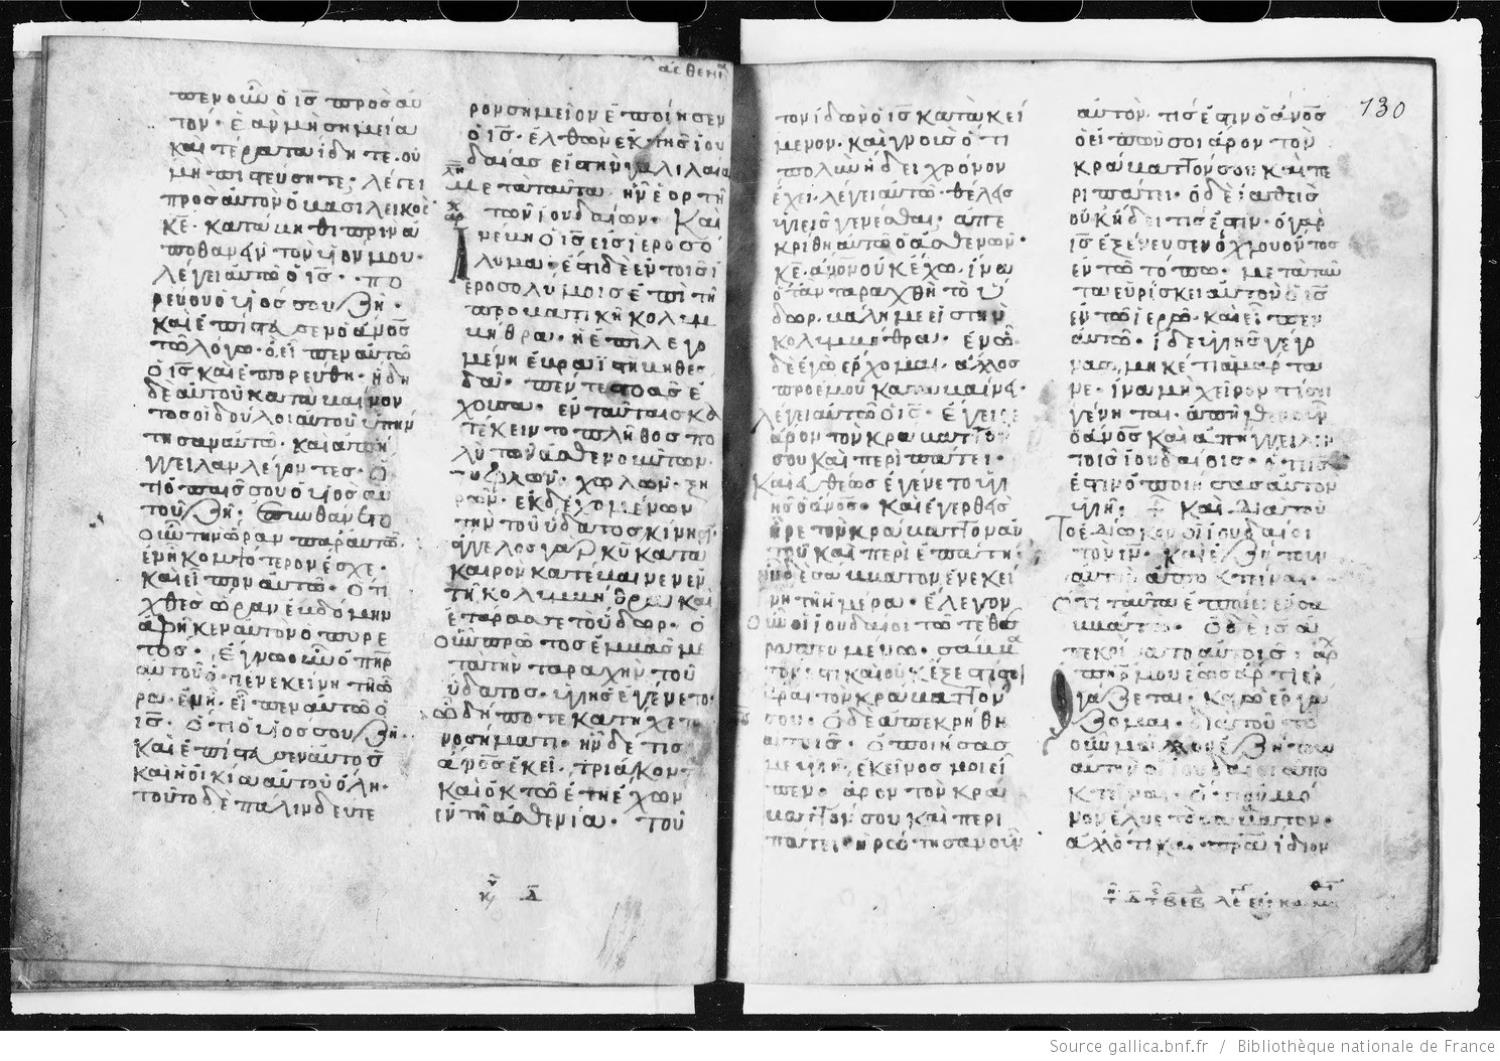 πεν οὖν ὁ ι̅ς̅ πρὸς αὐ
τόν· ἐὰν μὴ σημεῖα
καὶ τέρατα ἴδητε· οὐ
μὴ πιστεύσητε· λέγει
πρὸς αὐτὸν ὁ βασιλικός·
κ̅ε̅· κατάβηθι πρὶν ἀ
ποθανεῖν τὸν υἱόν μου·
λέγει αὐτῶ ὁ ι̅ς̅· πο
ρεύου ὁ υἱός σου ζῆ·
καὶ ἐπίστευσεν ὁ α̅ν̅ο̅ς̅
τῶ λόγω· ὃ εἶπεν αὐτῶ
ὁ ι̅ς̅ καὶ ἐπορεύθη· ἤδη
δὲ αὐτοῦ καταβαίνον
τος οἱ δοῦλοι αὐτοῦ ὑπήν
τησαν αὐτῶ· καὶ ἀπήγ
γειλαν λέγοντες· ὅ
τι ὁ παῖς σου ὁ υἱὸς αὐ
τοῦ ζῆ· ἐπύθανετο
οὖν τὴν ὥραν παρ αὐτῶν·
ἐν ἧ κομψότερον ἔσχε·
καὶ εἶπον αὐτῶ· ὅτι
χθὲς ὥραν ἑβδόμην
ἀφῆκεν αὐτὸν ὁ πυρε
τός· ἔγνω οὖν ὁ π̅η̅ρ̅
αὐτοῦ ὅτι ἐν ἐκείνη τῆ ὥ
ρα· ἐν ἧ· εἶπεν αὐτῶ ὁ
ι̅ς̅· ὅτι ὁ υἱός σου ζῆ·
καὶ ἐπίστευσεν αὐτὸς
καὶ ἡ οἰκία αὐτοῦ ὅλη·
τοῦτο δὲ πάλιν δεύτε
ρον σημεῖον ἐποίησεν
ὁ ι̅ς̅· ἐλθὼν ἐκ τῆς ἰου
δαίας εἰς τὴν γαλιλαίαν
μετὰ ταῦτα ἦν ἑορτὴ
τῶν ἰουδαίων· Καὶ
ἀνέβη ὁ ι̅ς̅ εἰς ἱεροσό
λυμα· ἔστι δὲ ἐν τοῖς ἱ
εροσολύμοις ἐπὶ τῆ
προβατικῆ κολυμ
βήθρα· ἡ ἐπιλεγο
μένη ἑβραϊστὶ βηθεσ
δά· πέντε στοὰς ἔ
χουσα· ἐν ταύταις κα
τέκειτο πλῆθος πο
λὺ τῶν ἀσθενούντων·
τυφλῶν· χωλῶν· ξη
ρῶν· ἐκδεχομένων
τὴν τοῦ ὕδατος κίνησι·
ἄγγελος γὰρ κ̅υ̅ κατὰ
καιρὸν κατέβαινεν ἐν
τῆ κολυμβήθρα καὶ
ἐτάρασσε τὸ ὕδωρ· ὁ
οὖν πρῶτος ἐμβὰς με
τὰ τὴν ταραχὴν τοῦ
ὕδατος· ὑγιὴς ἐγένετο·
ὧ δήποτε κατήχετο
νοσήματι· ἦν δέ τις
α̅ν̅ο̅ς̅ ἐκεῖ· τριάκοντα
καὶ ὀκτὼ ἔτη ἔχων
ἐν τῆ ἀσθενία· τοῦ
130
τον ἰδὼν ὁ ι̅ς̅ κατακεί
μενον· καὶ γνοὺς ὅτι
πολὺν ἤδει χρόνον
ἔχει· λέγει αὐτῶ· θέλεις
ὑγιὴς γενέσθαι· ἀπε
κρίθη αὐτῶ ὁ ἀσθενῶν·
κ̅ε̅· α̅ν̅ο̅ν̅ οὐκ ἔχω· ἵνα
ὅταν ταραχθῆ τὸ ὕ
δωρ· βάλη με εἰς τὴν
κολυμβήθραν· ἐν ὧ
δὲ ἐγὼ ἔρχομαι· ἄλλος
πρὸ ἐμοῦ καταβαίνει·
λέγει αὐτῶ ὁ ι̅ς̅· ἔγειρε
ἆρον τὸν κράβαττόν
σου καὶ περιπάτει·
Καὶ εὐθέως ἐγένετο ὑγι
ὴς ὁ α̅ν̅ο̅ς̅· καὶ ἐγερθεὶς
ἦρε τὸν κράβαττον αὐ
τοῦ καὶ περιεπάτη·
ἦν δὲ σάββατον ἐν ἐκεί
νη τῆ ἡμέρα· ἔλεγον
οὖν οἱ ἰουδαῖοι τῶ τεθε
ραπευμένω· σάββα
τόν ἐστι καὶ οὐκ ἔξεστί σοι
ἆραι τὸν κράβαττόν
σου· ὁ δὲ ἀπεκρήθη
αὐτοῖς· ὁ ποιήσας
με ὑγιῆ· ἐκεῖνός μοι εἶ
πεν· ἆρον τὸν κρά
βαττόν σου καὶ περι
πάτει· ἠρώτησαν οὖν
αὐτόν· τίς ἐστιν ὁ α̅ν̅ο̅ς̅
ὁ εἰπών σοι ἆρον τὸν
κράβαττόν σου καὶ πε
ριπάτει· ὁ δὲ ἰαθεὶς
οὐκ ἤδει τίς ἐστιν· ὁ γὰρ
ι̅ς̅ ἐξένευσεν ὄχλου ὄντος
ἐν τῶ τόπω· μετὰ ταῦ
τα εὑρίσκει αὐτὸν ὁ ι̅ς̅
ἐν τῶ ἱερῶ· καὶ εἶπεν
αὐτῶ· ἴδε ὑγιὴς γέγο
νας, μηκέτι ἁμάρτα
νε· ἵνα μὴ χεῖρόν τί σοι
γένηται· ἀπῆλθεν οὖν
ὁ α̅ν̅ο̅ς̅ καὶ ἀπήγγειλεν
τοῖς ἰουδαίοις· ὅτι ι̅ς̅
ἐστὶν ὁ ποιήσας αὐτὸν
ὑγιῆ· Καὶ διὰ τοῦ
το ἐδίωκον οἱ ἰουδαῖοι
τὸν ι̅ν̅· καὶ ἐζήτουν
αὐτὸν ἀποκτεῖναι·
ὅτι ταῦτα ἐποίει ἐν σα
ββάτω· ὁ δὲ ι̅ς̅ ἀ
πεκρίνατο αὐτοῖς·
ὁ π̅η̅ρ̅ μου ἕως ἄρτι ἐρ
γάζεται· κἀγὼ ἐργά
ζομαι· διὰ τοῦτο
οὖν μᾶλλον ἐζήτουν
αὐτὸν οἱ ἰουδαῖοι ἀπο
κτεῖναι· ὅτι οὐ μό
νον ἔλυε τὸ σάββατον·
ἀλλ ὅτι καὶ π̅ρ̅α̅ ἴδιον
Source gallica.bnf.fr / Bibliothèque nationale de France